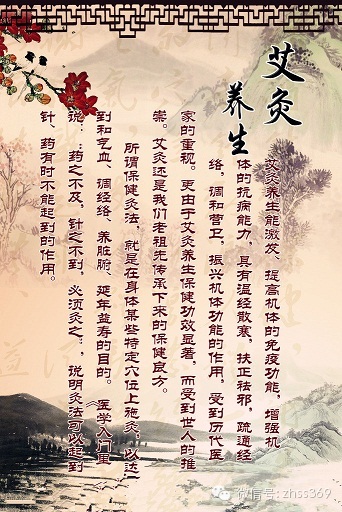 艾灸
养生
艾灸养生能激发、提高机体的免疫功能，增强机
体的抗病能力，具有温经散寒，扶正祛邪，疏通经
络，调和营卫，振兴机体功能的作用，受到历代医
家的重视。更由于艾灸养生保健功效显著，而受到世人的推
崇。艾灸还是我们老祖先传承下来的保健良方。
所谓保健灸法，就是在身体某些特定穴位上施灸，以达
到和气血、调经络、养脏腑、延年益寿的目的。《医学入门里
说：：药之不及，针之不到，必须灸之：，说明灸法可以起到
针、药有时不能起到的作用。
微信号: zhss369